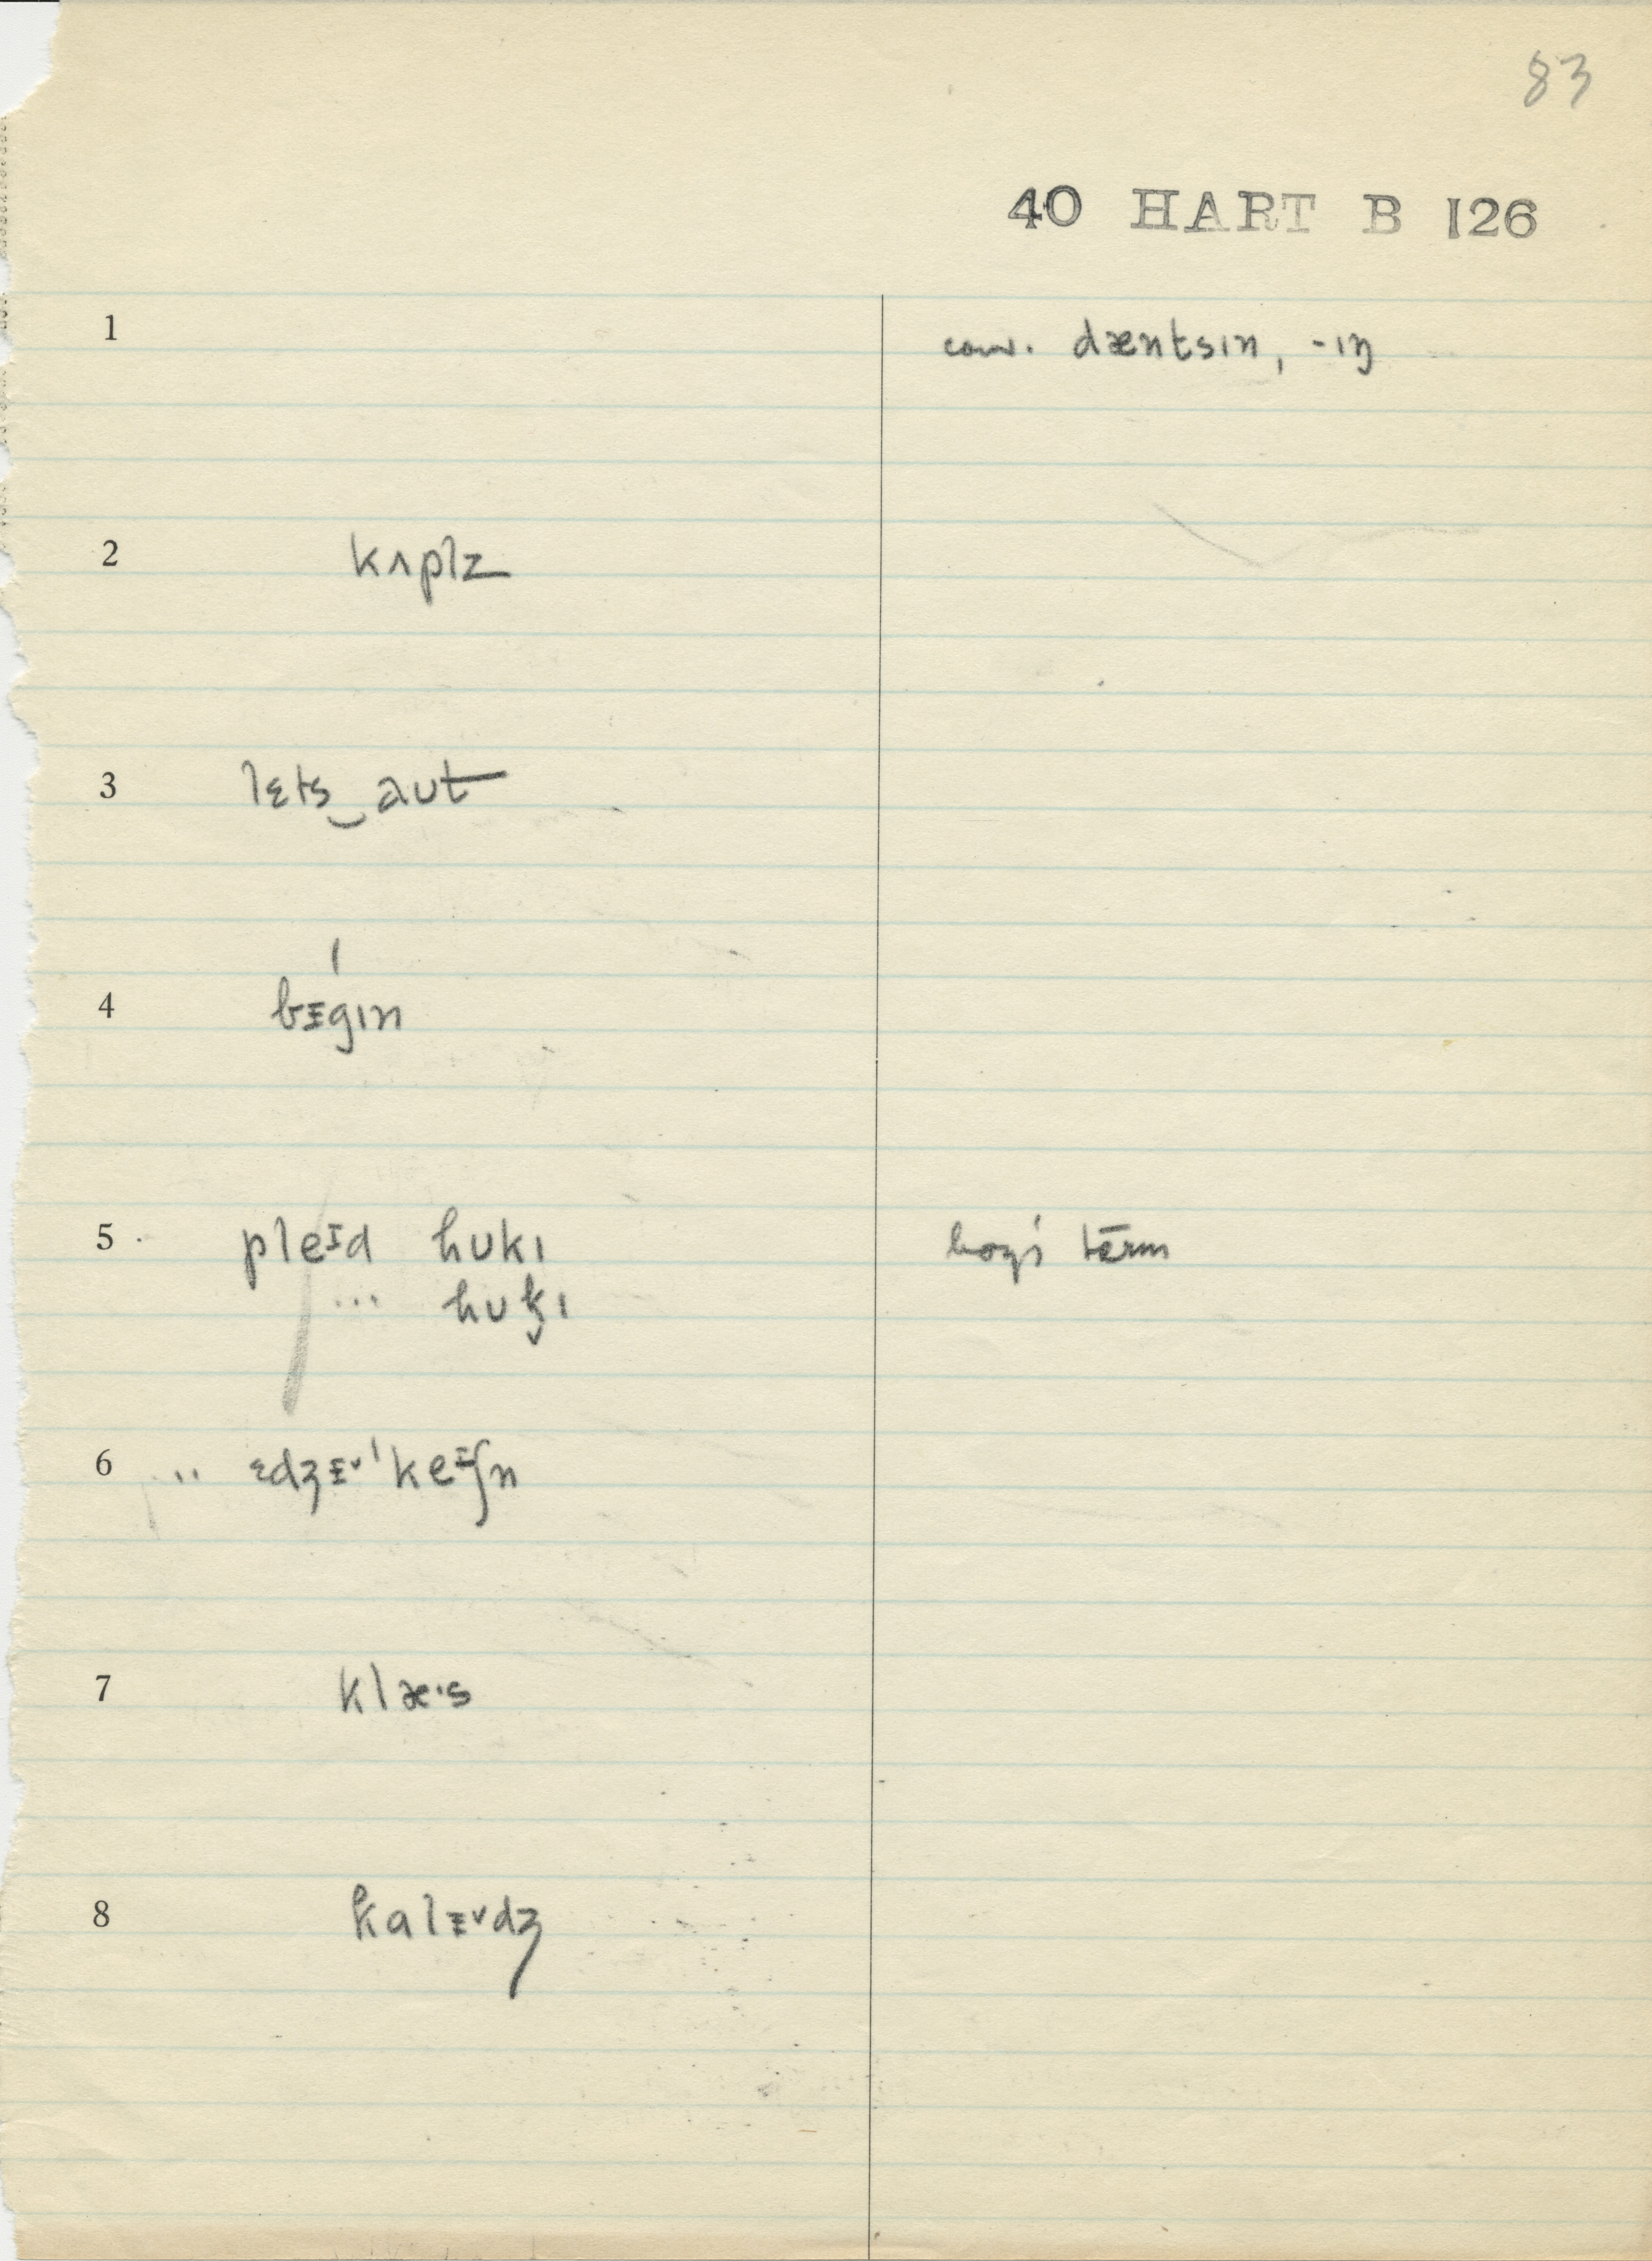 83
40 HART B 126
1 conv. dæntsɪn, -ɪŋ
2 kʌplz
3 lɛts‿aʊt
4 bᵻˈgɪn
5 pleᵻd hʊkɪ boys' term
... hʊk̬ɪ
6 .. ɛdʒᵻ˅ˈkeᵻʃn
7 klæˑs
8 kalᵻ˅dʒ